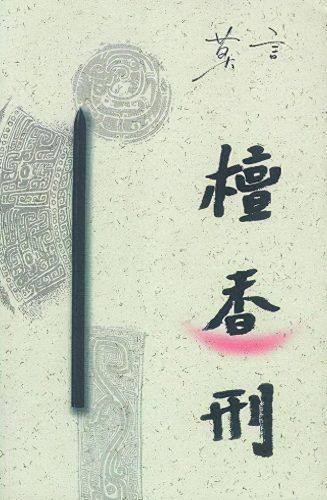 莫言
檀香刑